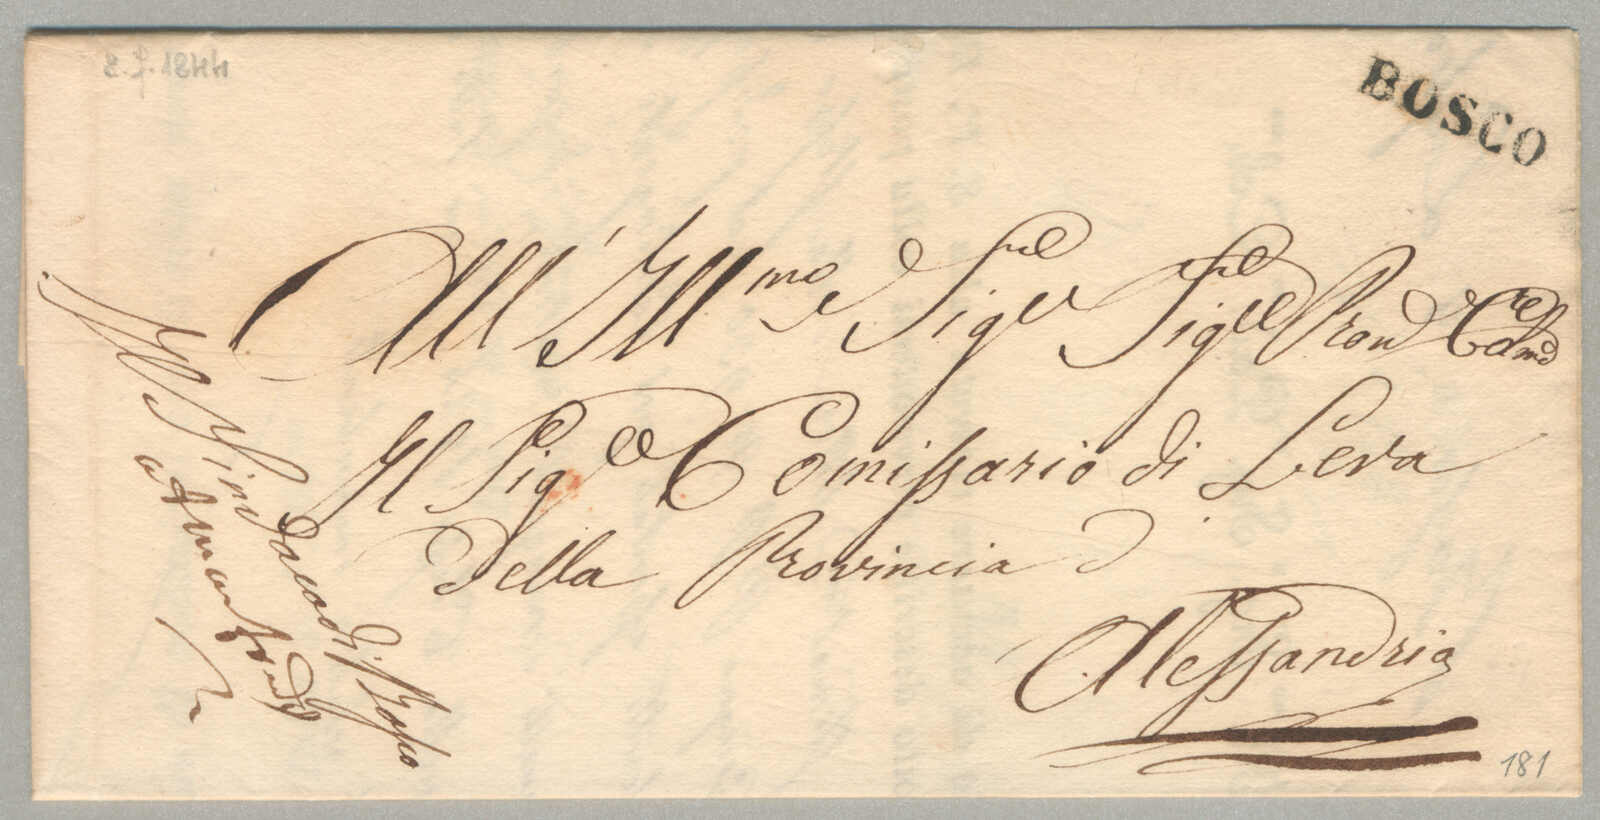 8.7.1844
BOSCO
All' Ill.mo Sig.re Sig.re Pron.e Col.mo
Il Sig.re Comissario di Leva
della Provincia d'
Alessandria
Il Sindaco di Bosco
181